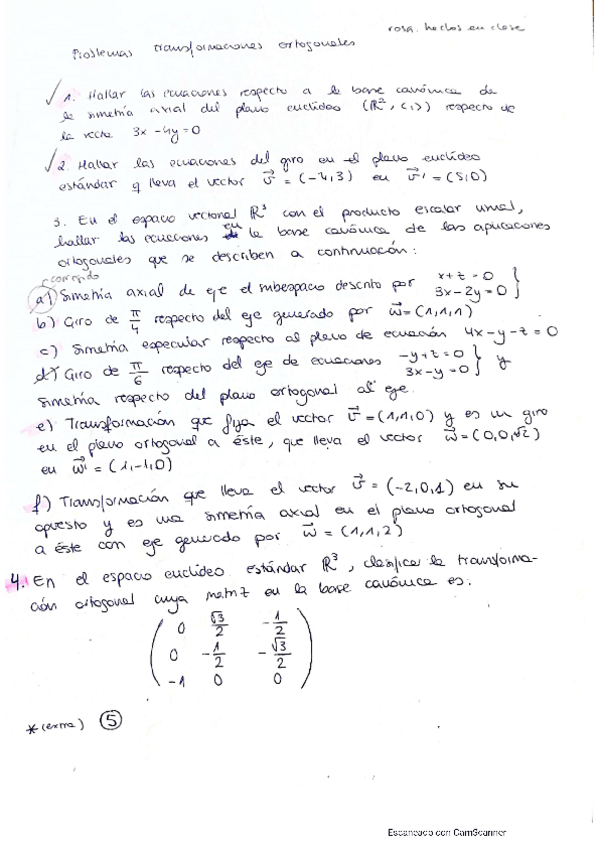 rosa: hechos en clase
Problemas transformaciones ortogonales
1. Hallar las ecuaciones respecto a la base canónica de
la simetría axial del plano euclídeo (ℝ², <,>) respecto de
la recta 3x - 4y = 0
2. Hallar las ecuaciones del giro en el plano euclídeo
estándar q lleva el vector v⃗ = (-4,3) en v⃗' = (5,0)
3. En el espacio vectorial ℝ³ con el producto escalar usual,
hallar las ecuaciones en la base canónica de las aplicaciones
ortogonales que se describen a continuación:
corregido
a) Simetría axial de eje el subespacio descrito por x+z=0 3x-2y=0 }
b) Giro de π/4 respecto del eje generado por w⃗=(1,1,1)
c) Simetría especular respecto al plano de ecuación 4x-y-z=0
d) Giro de π/6 respecto del eje de ecuaciones -y+z=0 3x-y=0 } y
simetría respecto del plano ortogonal al eje.
e) Transformación que fija el vector v⃗=(1,1,0) y es un giro
en el plano ortogonal a éste, que lleva el vector w⃗=(0,0,√2)
en w⃗'=(1,-1,0)
f) Transformación que lleva el vector v⃗=(-2,0,1) en su
opuesto y es una simetría axial en el plano ortogonal
a éste con eje generado por w⃗=(1,1,2)
4. En el espacio euclídeo estándar ℝ³, clasifica la transforma-
ción ortogonal cuya matriz en la base canónica es:
0 √3/2 -1/2
0 -1/2 -√3/2
-1 0 0
*(extra) 5
Escaneado con CamScanner